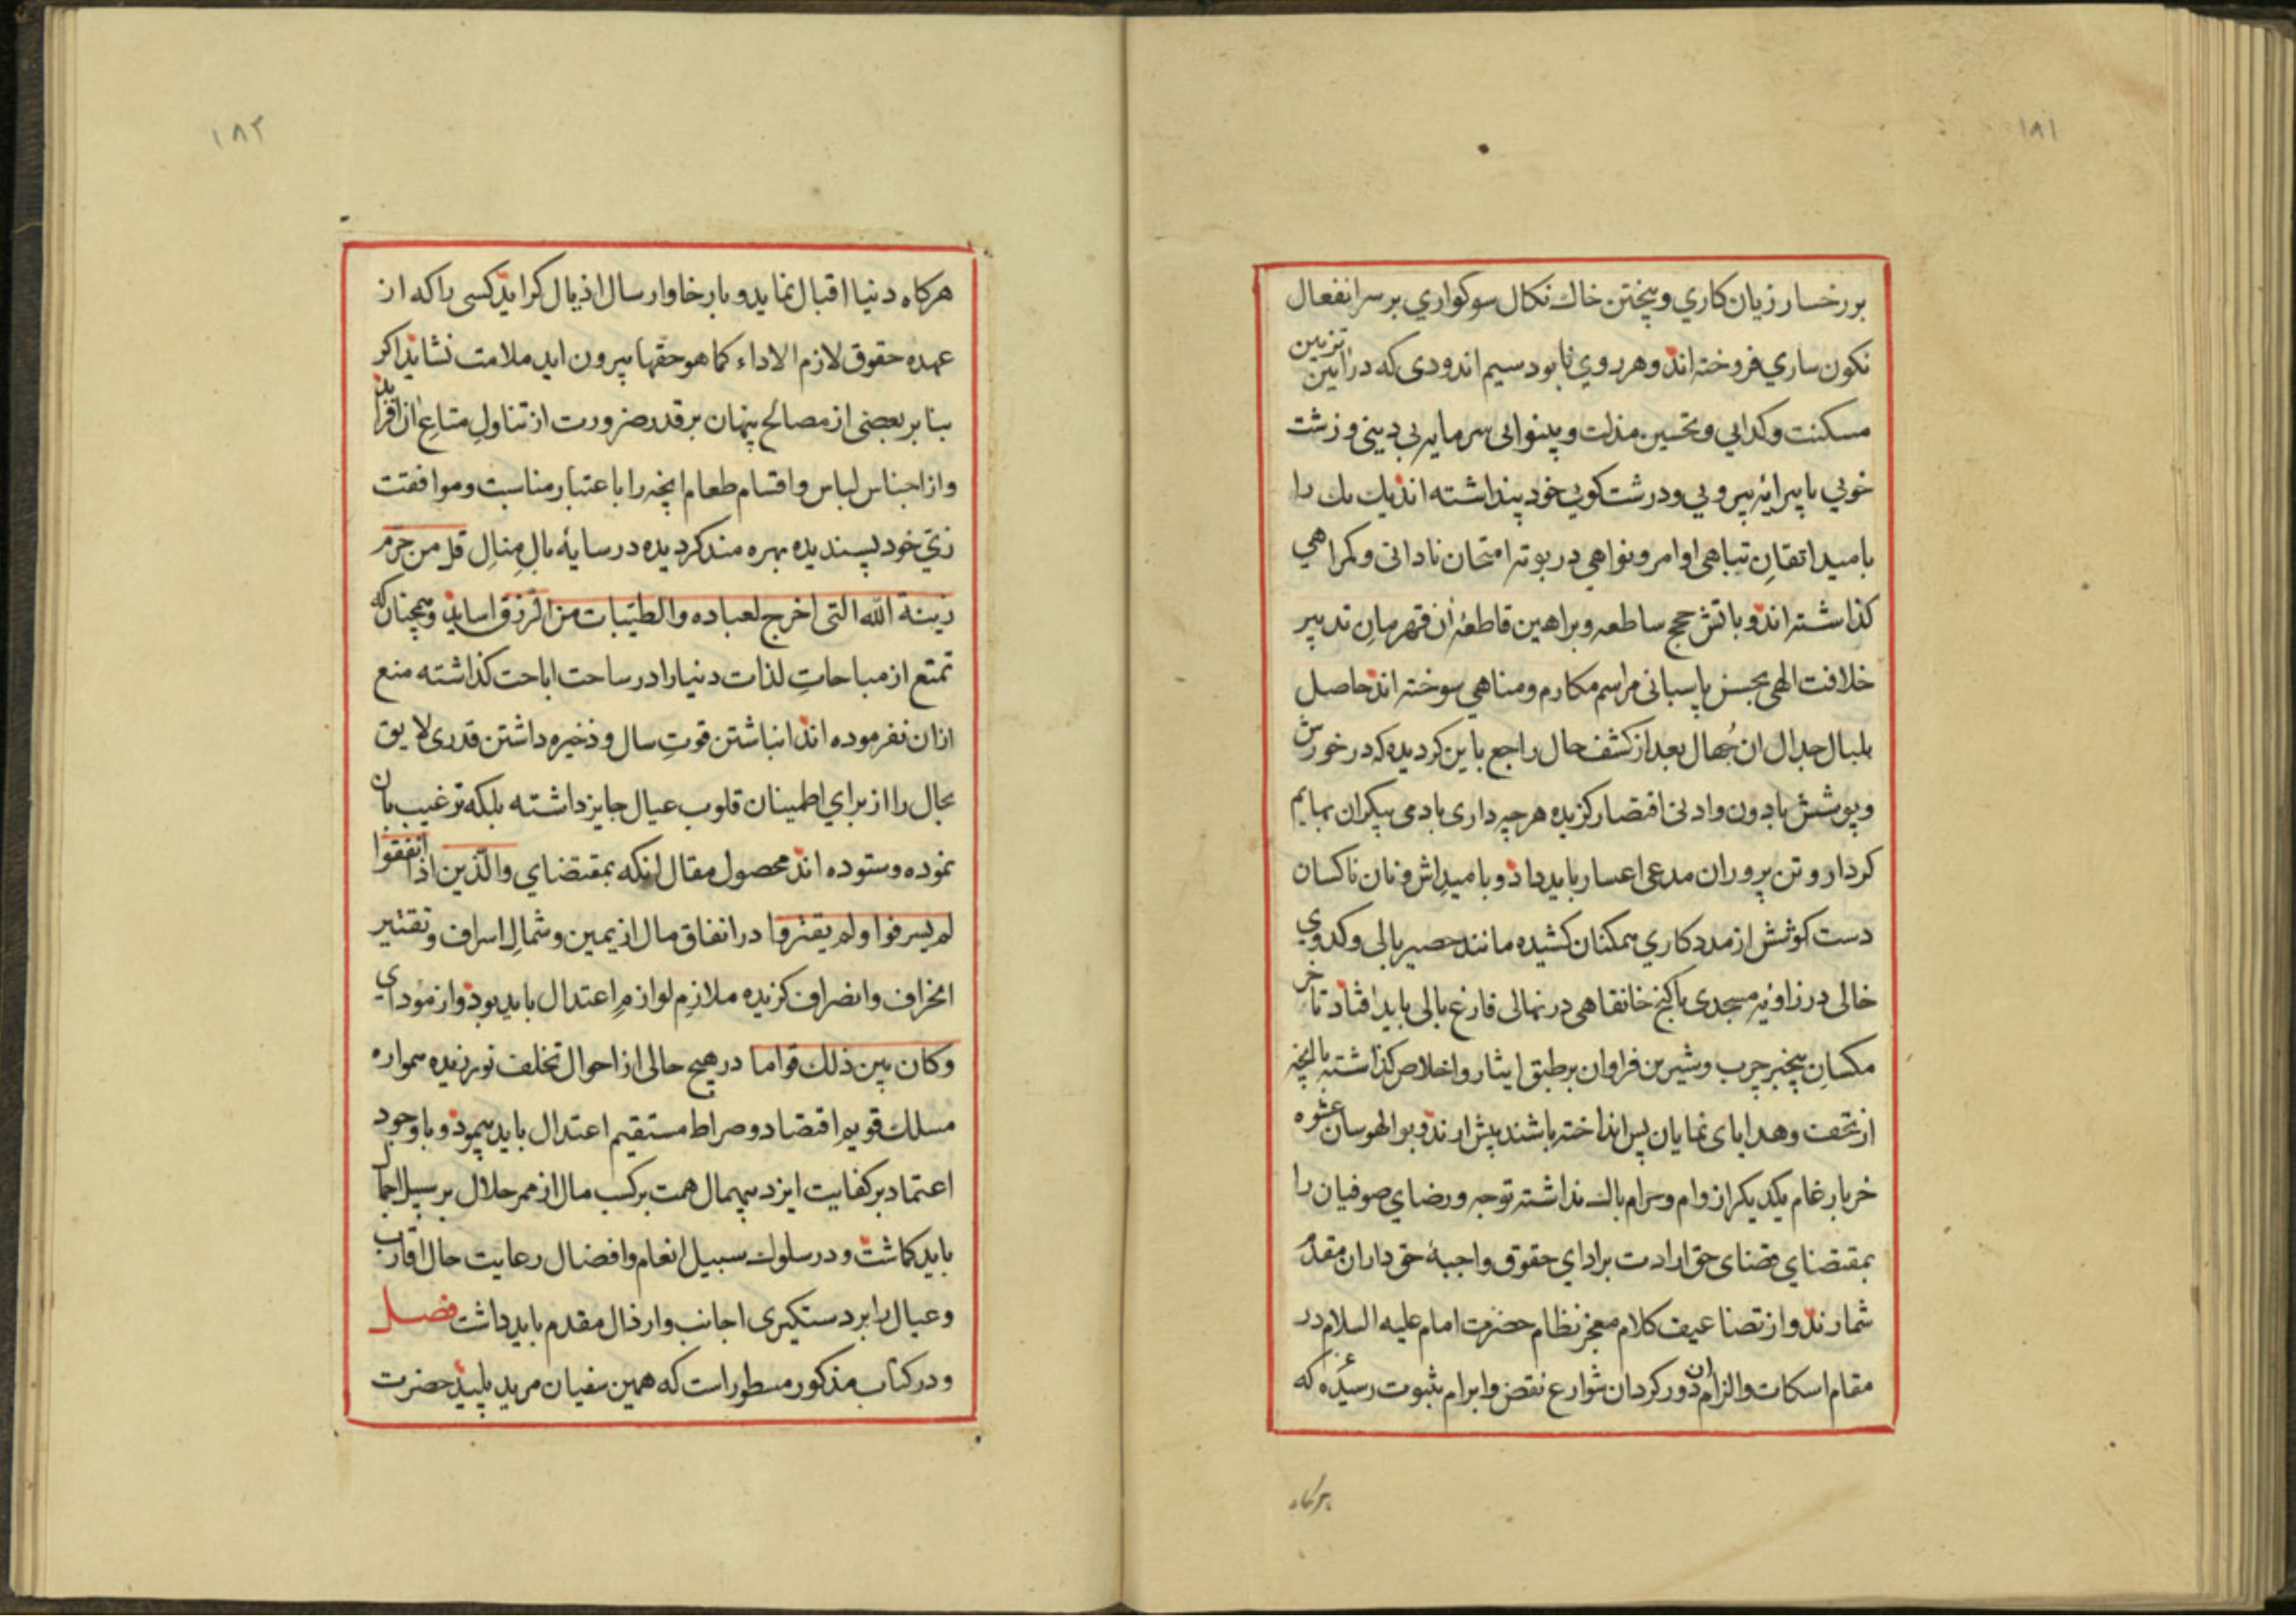 ۱۸۱
بررخسار زیان کاري و پیختن خاك نکال سوکواري بر سر انفعال
نکون ساري فروخته اند وهر روي نابود سیم اندودی که در ایین تزیین
مسکنت و کدایي و تحسین مذلت و بینوایی سرمایه بی دینی و زشت
خویي یا پیرایۀ پیرویي و درشت کویي خود پنداشته اند یك یك را
بامید اتقانِ تباهی اوامر و نواهي در بوته امتحان نادانی و کمراهي
کذاشته اند و باتش حجج ساطعه و براهین قاطعۀ ان قهرمانِ تدبیر
خلافت الهي بحسن پاسبانی مراسم مکارم و مناهي سوخته اند حاصل
بلبال جدال ان جُهال بعد از کشف حال راجع باین کردیده که در خورش
و پوشش بادون و ادنی اقتصار کزیده هرچه داری بادمی پیکران بهایم
کردار و تن پروران مدعی اعسار باید داد و بامیدِ اش و نان ناکسان
دست کوشش از مدد کاري همکنان کشیده مانند حصیر بالی و کدوي
خالی در زاویۀ مسجدی یا کنج خانقاهی در نهالی فارغ بالی باید افتاد تا خر
مکسانِ بیخبر چرب و شیرین فراوان بر طبق ایثار و اخلاص کذاشته با انچه
از تحف و هدایای نمایان پس انداخته باشند پیش ارند و بوالهوسان عشوه
خر بارغام یکدیکر از وام و حرام باك نداشته توجه و رضاي صوفیان را
بمقتضاي قضای حق ارادت بر اداي حقوق واجبۀ حق داران مقدم
شمارند و از تضاعیف کلام معجز نظام حضرت امام علیه السلام در
مقام اسکات و الزام ان دور کردان شوارع نقض و ابرام بثبوت رسیده که
هرکاه
۱۸۲
هرکاه دنیا اقبال نماید و بار خا و ارسال اذیال کراید کسی را که از
عهده حقوق لازم الاداء کما هو حقها بیرون اید ملامت نشاید اکر
بنا بر بعضی از مصالح پنهان بر قدر ضرورت از تناولِ متاعِ ان افزاید
و از اجناس لباس و اقسام طعام انچه را باعتبار مناسبت و موافقت
زيّ خود پسندیده بهره مند کردیده در سایۀ بالِ منالِ قل من حرّم
زینة الله التی اخرج لعباده والطیّبات من الرّزق اساید و همچنان که
تمتع از مباحاتِ لذات دنیا را در ساحت اباحت کذاشته منع
ازان نفرموده اند انباشتن قوتِ سال و ذخیره داشتن قدری لایق
بحال را از براي اطمینان قلوب عیال جایز داشته بلکه ترغیب بان
نموده و ستوده اند محصول مقال انکه بمقتضاي والّذین اذا انفقوا
لم یسرفوا ولم یقتروا در انفاق مال از یمین و شمالِ اسراف و تقتیر
انحراف و انصراف کزیده ملازمِ لوازمِ اعتدال باید بود و از مؤداي
وکان بین ذلك قواما در هیچ حالی از احوال تخلف نورزیده همواره
مسلك قویم اقتصاد و صراط مستقیم اعتدال باید پیمود و با وجود
اعتماد بر کفایت ایزد بیهمال همت بر کسب مال از ممر حلال بر سبیل اجمال
باید کماشت و در سلوك سبیل انعام و افضال رعایت حال اقارب
و عیال را بر دستکیری اجانب و ارذال مقدم باید داشت فصل
و در کتاب مذکور مسطور است که همین سفیان مرید پلید حضرت